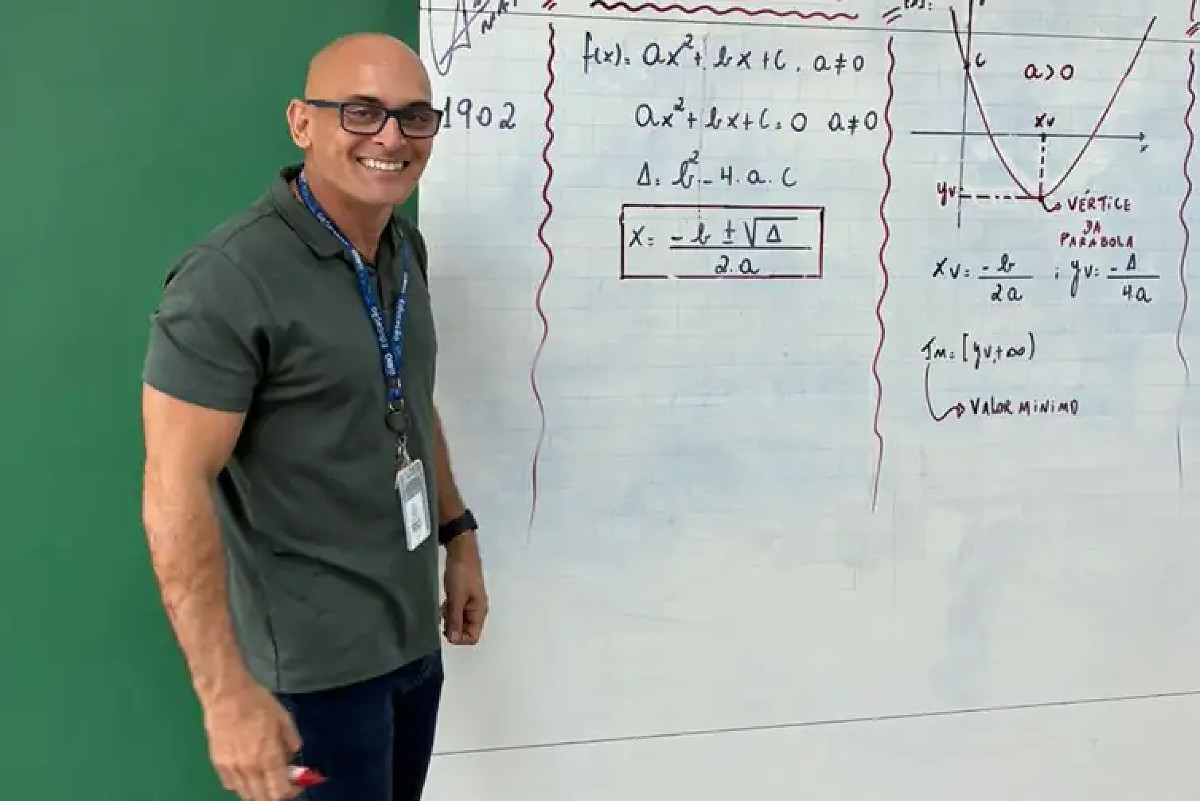 1902
f(x)= ax²+bx+c, a≠0
ax²+bx+c=0 a≠0
Δ= b²-4.a.c
x= -b ± √Δ
2.a
c
a>0
xv
x
yv
VÉRTICE
DA
PARÁBOLA
xv= -b ; yv= -Δ
2a 4a
Im=[yv,+∞)
VALOR MÍNIMO
Educação